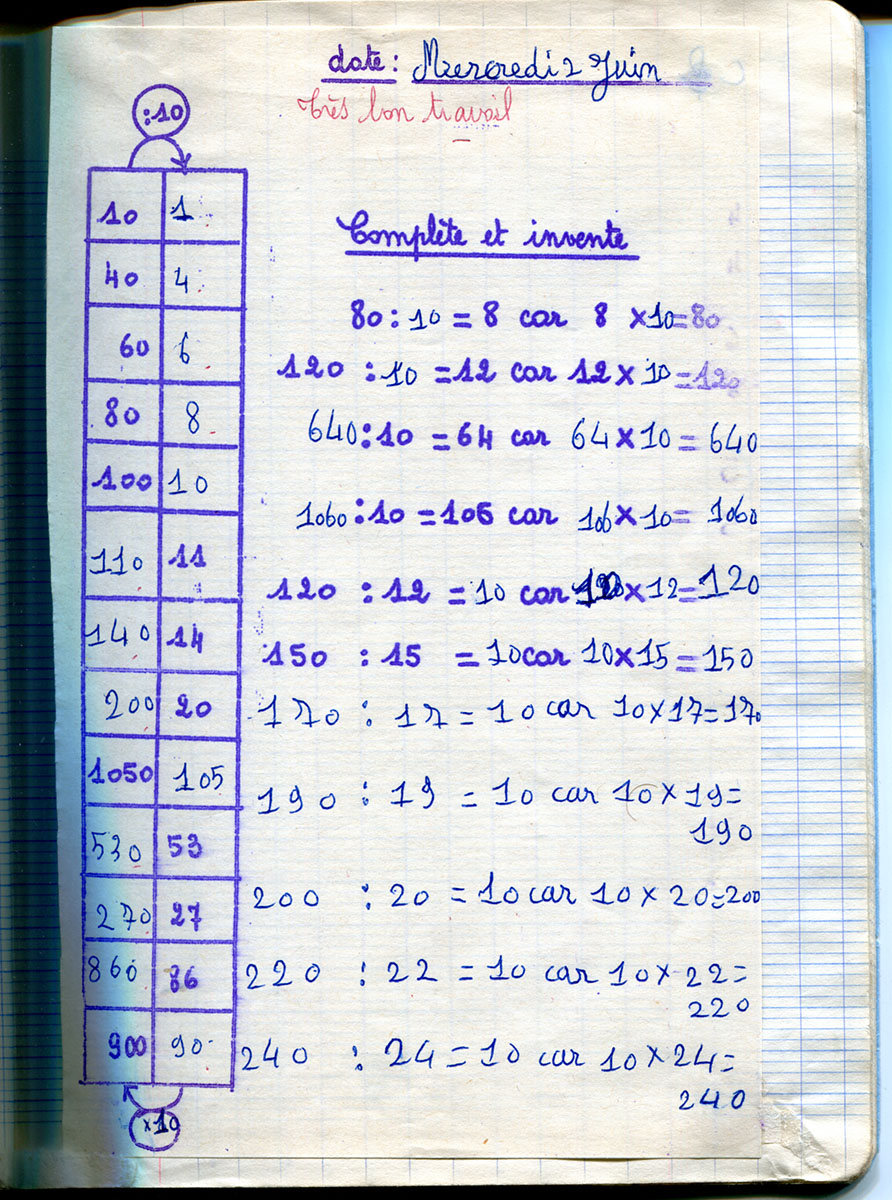 date : Mercredi 2 Juin
Très bon travail
:10
10 1
40 4
60 6
80 8
100 10
110 11
140 14
200 20
1050 105
530 53
270 27
860 86
900 90
×10
Complète et invente
80 : 10 = 8 car 8 × 10 = 80
120 : 10 = 12 car 12 × 10 = 120
640 : 10 = 64 car 64 × 10 = 640
1060 : 10 = 106 car 106 × 10 = 1060
120 : 12 = 10 car × 12 = 120
150 : 15 = 10 car 10 × 15 = 150
170 : 17 = 10 car 10 × 17 = 170
190 : 19 = 10 car 10 × 19 =
190
200 : 20 = 10 car 10 × 20 = 200
220 : 22 = 10 car 10 × 22 =
220
240 : 24 = 10 car 10 × 24 =
240